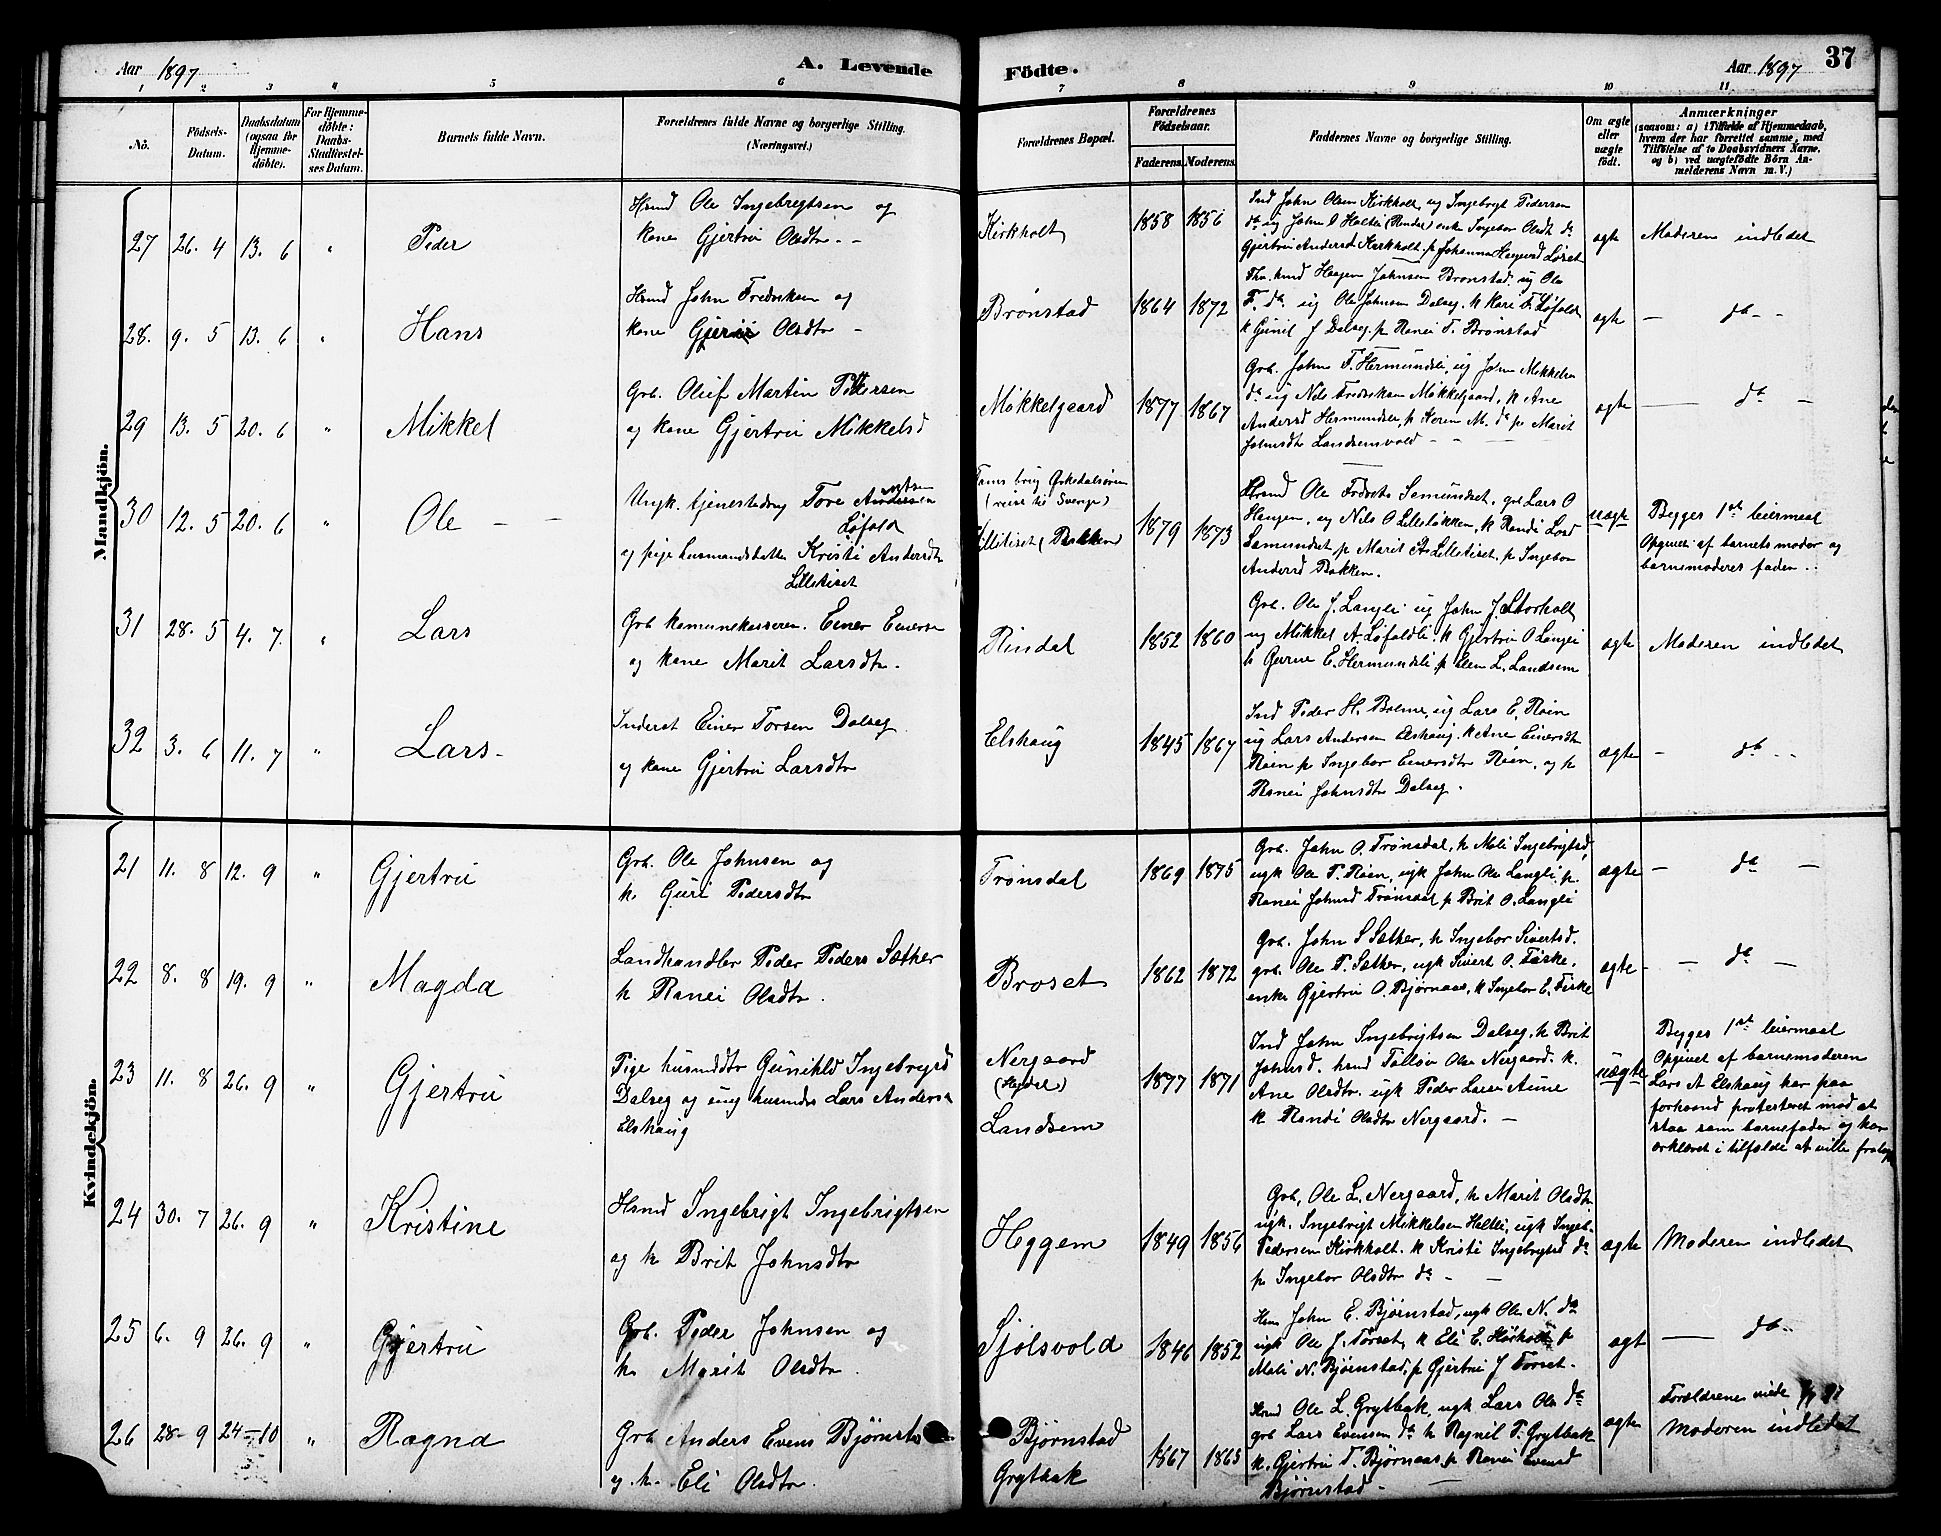 Aar 1897
A. Levende
Födte.
Aar 1897
37
1 2 3 4 5 6 7 8 9 10 11
No.
Födsels-
Datum.
Daabsdatum
(ogsaa for
Hjemme-
döbte).
For Hjemme-
döbte:
Daabs-
Stadfæstel-
ses Datum.
Barnets fulde Navn.
Forældrenes fulde Navne og borgerlige Stilling.
(Næringsvei.)
Forældrenes Bopæl.
Forældrenes
Födselsaar.
Faderens. Moderens.
Faddernes Navne og borgerlige Stilling.
Om ægte
eller
uægte
födt.
Anmærkninger
(saasom: a) i Tilfælde af Hjemmedaab,
hvem der har forrettet samme, med
Tilföielse af to Daabsvidners Navne,
og b) ved uægtefödte Börn An-
melderens Navn m. V.)
Mandkjön.
27 26. 4 13. 6 " Peder
Hsmd Ole Ingebregtsen og
kone Gjertru Olsdtr - -
Kirkholt
1858 1856
Ind John Olsen Kirkholt, ug Ingebrgt Pedersen
do ug John O Haltli (Rindar) enke Ingebor Olsdt do
Gjertru Andersd Kirkholt. p Johanna Løset
ægte
Moderen indledet
28. 9. 5 13. 6 " Hans
Hsmd John Fredriksen og
kone Olsdtr -
Brønstad
1864 1872
hsmd Haagen Johnsen Brønstad, ug Ole
F. do. ug Ole Johnsen Dalseg. k Kari F. Løfald
k Gunil J Dalseg. p Ranei T. Brønstad
ægte
— do - -
29 13. 5 20. 6 " Mikkel
Grb. Oluf Martin Pettersen
og kone Gjertru Mikkelsd
Mikkelgaard
1877 1867
Grb. John F. Hermundsli, ug John Mikkelsn
do ug Nils Fredriksen Mikkelgaard, k Ane
Andersd Hermundsli, p Karen M. do p. Marit
Johnsdtr Landsemvold - - -
ægte
— do -
30 12. 5 20. 6 " Ole - -
Ungk. tjenestedrng Tore Andersen
Løfald
og pige husmandsdatter Kristi Andersdtr
Lillekiset
brug Orkedalsøren
(reist til Sverige)
(Bakken)
1879 1873
Hsmd Ole Semundset, gbr Lars O
Haugen, og Nils O Lilleløkken, k Randi Larsd
Semundset p Marit A Lillekiset, p Ingebor
Andersd Bakken.
uægte
Begges 1ste leiermaal
Opgivet af barnets moder og
barnemoderes fader..
31 28. 5 4. 7. " Lars
Grb komunekasserer. Einer Einersn
og kone Marit Larsdtr.
Rindal
1852 1860
Grb. Ole J. Langli ug John J. Storholt
ug Mikkel A. Løfaldli. k Gjertru O Langli
k E. Hermundsli, p Elen L. Landsem
ægte
Moderen indledet
32 3. 6 11. 7 " Lars-
Inderst Einer Torsen Dalseg
og kone Gjertru Larsdtr
Elshaug
1845 1867
Ind Peder H. Bolme, ug Lars E. Røen
ug Lars Andersen Elshaug. k Ane Einersdtr
Røen p Ingebor Einersdtr Røen, og p
Ranei Johnsdtr Dalseg.
ægte
- do - -
Kvindekjön.
21 11. 8 12. 9 " Gjertru
Grb. Ole Johnsen og
k. Guri Pedersdtr
Trønsdal
1869 1875
Grb. John O. Trønsdal, k Mali Ingebrigtsd,
ugk Ole P. Røen, ugk John Ole Langli, p.
Ranei Johnsd Trønsdal p Brit O. Langli
ægte
— do —
22 8. 8 19. 9 " Magda
Landhandler Peder Peders Sæther
k Ranei Olsdtr.
Broset
1862 1872
Grb. John S Sæther, k Ingebor Sivertsd.
grb. Ole P. Sæther, ugk Sivert O. Fiske,
enke Gjertru O. Bjørnaas, k Ingebor E. Fiske
ægte
- — do —
23 11. 8 26. 9 " Gjertru
Pige husmdtr Gunihld Ingebrgtsd
Dalseg og ung husmdss Lars Andersn
Elshaug
Nergaard
Landsem
1877 1871
Ind John Ingebrigtsen Dalseg, k Brit
Johnsd. hsmd Tølløv Olsen Nergaard. k.
Ane Olsdtr. ugk Peder Larsen Aune
k Randi Olsdtr Nergaard. -
uægte
Begges 1ste leiermaal
Opgivet af barnemoderen
Lars A Elshaug har paa
forhaand protesteret mod at
staa som barnefader og har
erklæret i tilfælde at ville
24 30. 7 26. 9 " Kristine
Hsmd Ingebrigt Ingebrigtsen
og k Brit Johnsdtr
Heggem
1849 1856
Grb, Ole L. Nergaard, k Marit Olsdtr
ugk. Ingebrigt Mikkelsen Haltli, ugk Ingeb.
Pedersen Kirkholt. k Kristi Ingebrigtsd do
p Ingebor Olsdtr do - -
ægte
Moderen indledet
25 6. 9 26. 9 " Gjertru
Grb. Peder Johnsen og
k. Marit Olsdtr.
Sjølsvold
1846 1852
John E. Bjørnstad, ugk Ole N. do
ugk Ole J. Torset, k Eli E. p
Mali N. Bjørnstad, p Gjertru J Torset.
ægt
— do -
26 28- 9 24-10 " Ragna
Grb Anders Evens Bjørnstad
og k. Eli Olsdtr.
Bjørnstad
Grytbak
1867 1863
Hsmd Ole L Grytbak, ugk Lars Ols do
grb Lars Evensen do k Ragnil P. Grytbak
k. Gjertru T. Bjørnaas, p Ranei Evensd
Bjørnstad -
ægte
Forældrene viede
Moderen indledet